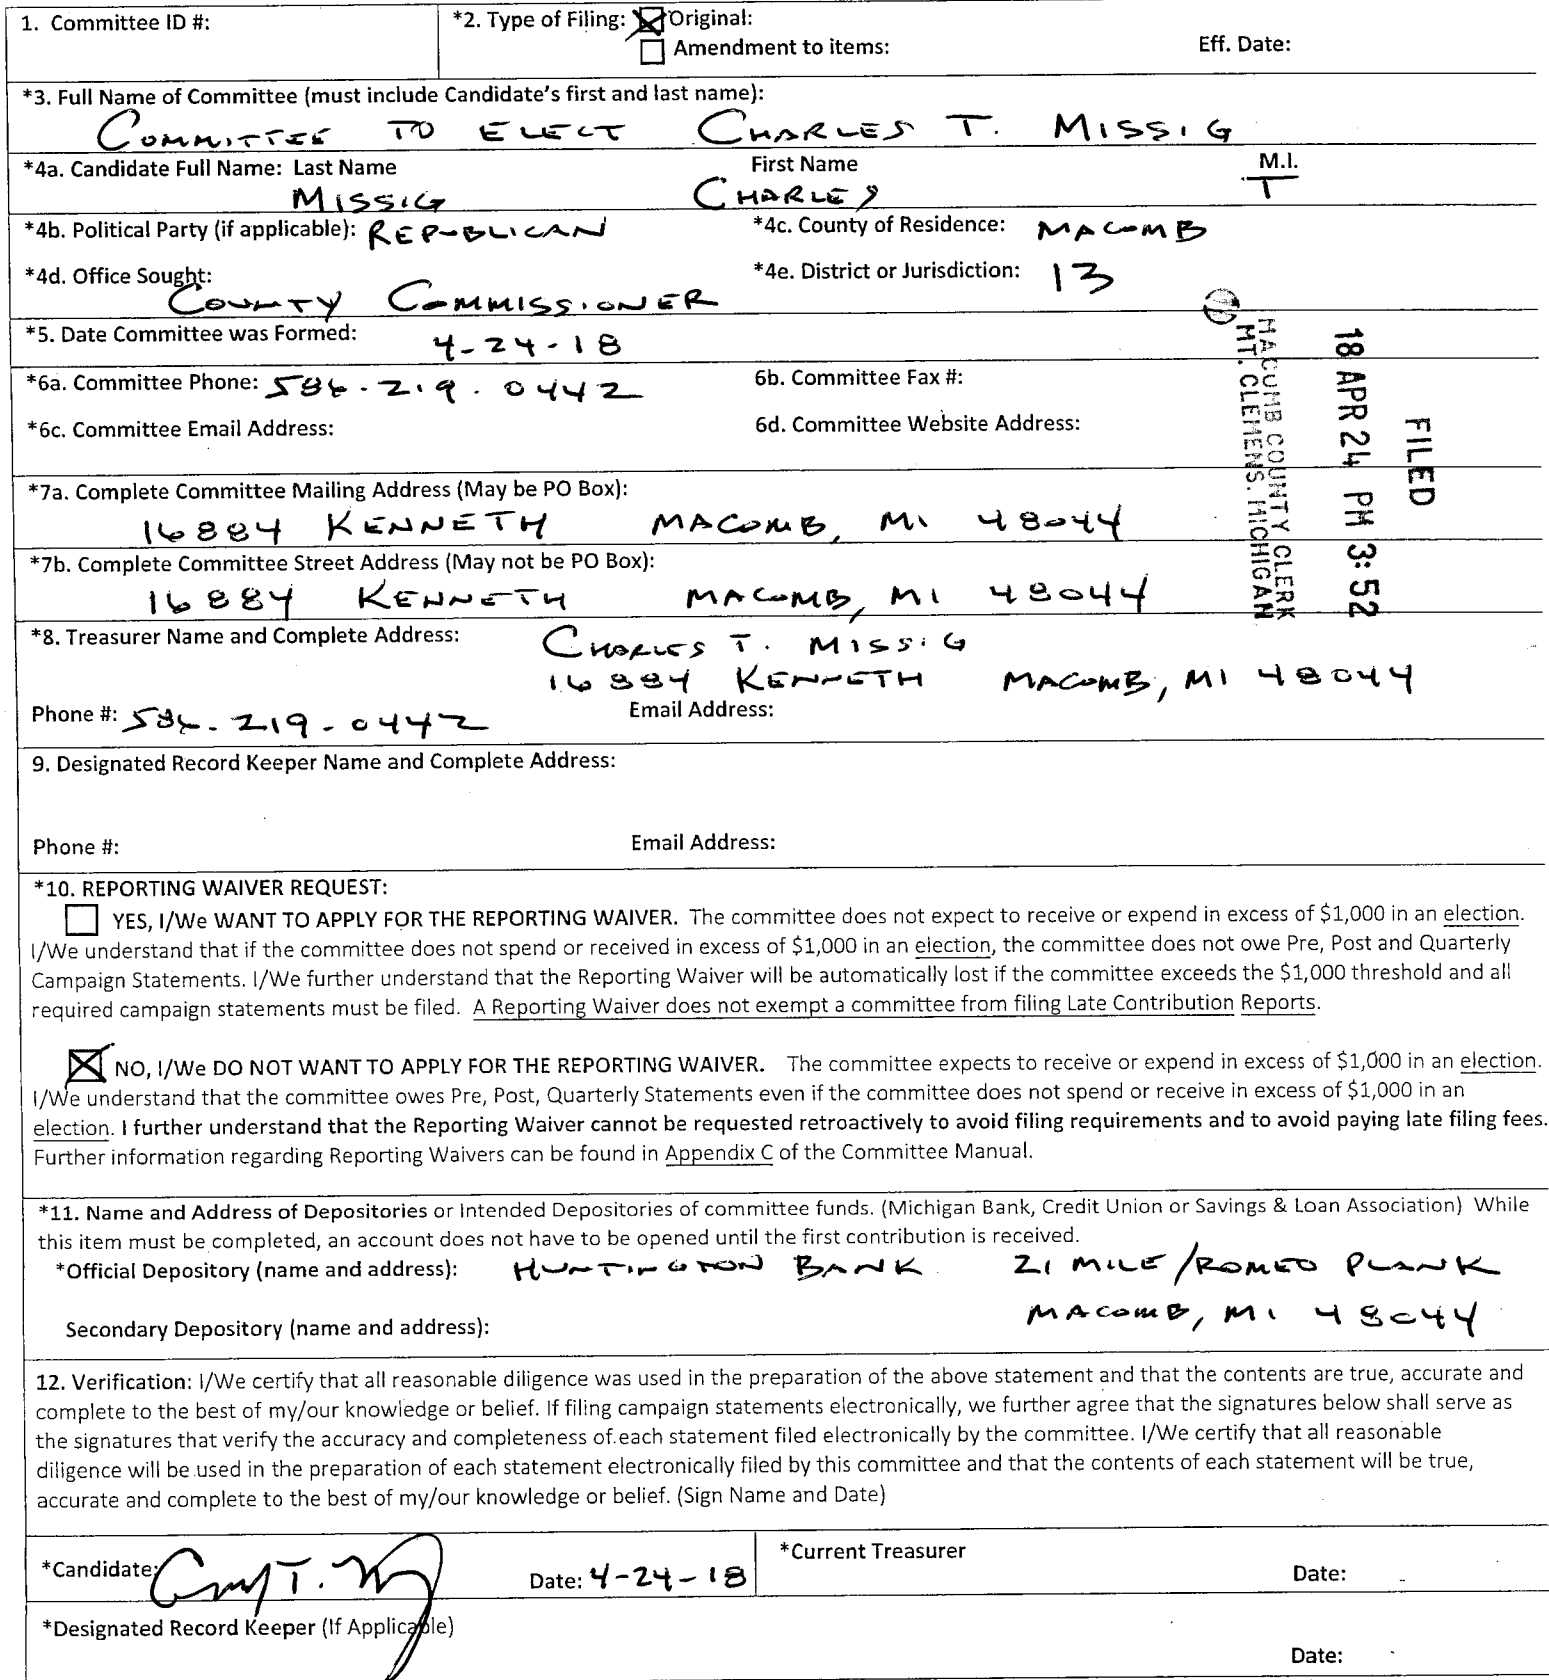 1. Committee ID #:
*2. Type of Filing: Original:
Amendment to items: Eff. Date:
*3. Full Name of Committee (must include Candidate's first and last name):
COMMITTEE TO ELECT CHARLES T. MISSIG
*4a. Candidate Full Name: Last Name First Name M.I.
MISSIG CHARLES T
*4b. Political Party (if applicable): REPUBLICAN *4c. County of Residence: MACOMB
*4d. Office Sought: *4e. District or Jurisdiction: 13
COUNTY COMMISSIONER
*5. Date Committee was Formed: 4-24-18
*6a. Committee Phone: 586.219.0442 6b. Committee Fax #:
*6c. Committee Email Address: 6d. Committee Website Address:
FILED
18 APR 24 PM 3:52
MACOMB COUNTY CLERK
MT. CLEMENS, MICHIGAN
*7a. Complete Committee Mailing Address (May be PO Box):
16884 KENNETH MACOMB, MI 48044
*7b. Complete Committee Street Address (May not be PO Box):
16884 KENNETH MACOMB, MI 48044
*8. Treasurer Name and Complete Address: CHARLES T. MISSIG
16884 KENNETH MACOMB, MI 48044
Phone #: 586-219-0442 Email Address:
9. Designated Record Keeper Name and Complete Address:
Phone #: Email Address:
*10. REPORTING WAIVER REQUEST:
YES, I/We WANT TO APPLY FOR THE REPORTING WAIVER. The committee does not expect to receive or expend in excess of $1,000 in an election.
I/We understand that if the committee does not spend or received in excess of $1,000 in an election, the committee does not owe Pre, Post and Quarterly
Campaign Statements. I/We further understand that the Reporting Waiver will be automatically lost if the committee exceeds the $1,000 threshold and all
required campaign statements must be filed. A Reporting Waiver does not exempt a committee from filing Late Contribution Reports.
NO, I/We DO NOT WANT TO APPLY FOR THE REPORTING WAIVER. The committee expects to receive or expend in excess of $1,000 in an election.
I/We understand that the committee owes Pre, Post, Quarterly Statements even if the committee does not spend or receive in excess of $1,000 in an
election. I further understand that the Reporting Waiver cannot be requested retroactively to avoid filing requirements and to avoid paying late filing fees.
Further information regarding Reporting Waivers can be found in Appendix C of the Committee Manual.
*11. Name and Address of Depositories or Intended Depositories of committee funds. (Michigan Bank, Credit Union or Savings & Loan Association) While
this item must be completed, an account does not have to be opened until the first contribution is received.
*Official Depository (name and address): HUNTINGTON BANK 21 MILE/ROMEO PLANK
MACOMB, MI 48044
Secondary Depository (name and address):
12. Verification: I/We certify that all reasonable diligence was used in the preparation of the above statement and that the contents are true, accurate and
complete to the best of my/our knowledge or belief. If filing campaign statements electronically, we further agree that the signatures below shall serve as
the signatures that verify the accuracy and completeness of each statement filed electronically by the committee. I/We certify that all reasonable
diligence will be used in the preparation of each statement electronically filed by this committee and that the contents of each statement will be true,
accurate and complete to the best of my/our knowledge or belief. (Sign Name and Date)
*Candidate: Date: 4-24-18 *Current Treasurer Date:
*Designated Record Keeper (If Applicable)
Date: